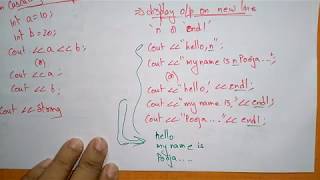 int a=10;
int b=20;
Cout << a << b;
(or)
Cout << a;
Cout << b;
Cout << string
⇒ display o/p on new line
'\n or endl'
Cout << "hello,n";
Cout << "my name is n Pooja...";
(or)
Cout << "hello," << endl;
Cout << "my name is," << endl;
Cout << "Pooja...." << endl;
hello
my name is
Pooja....